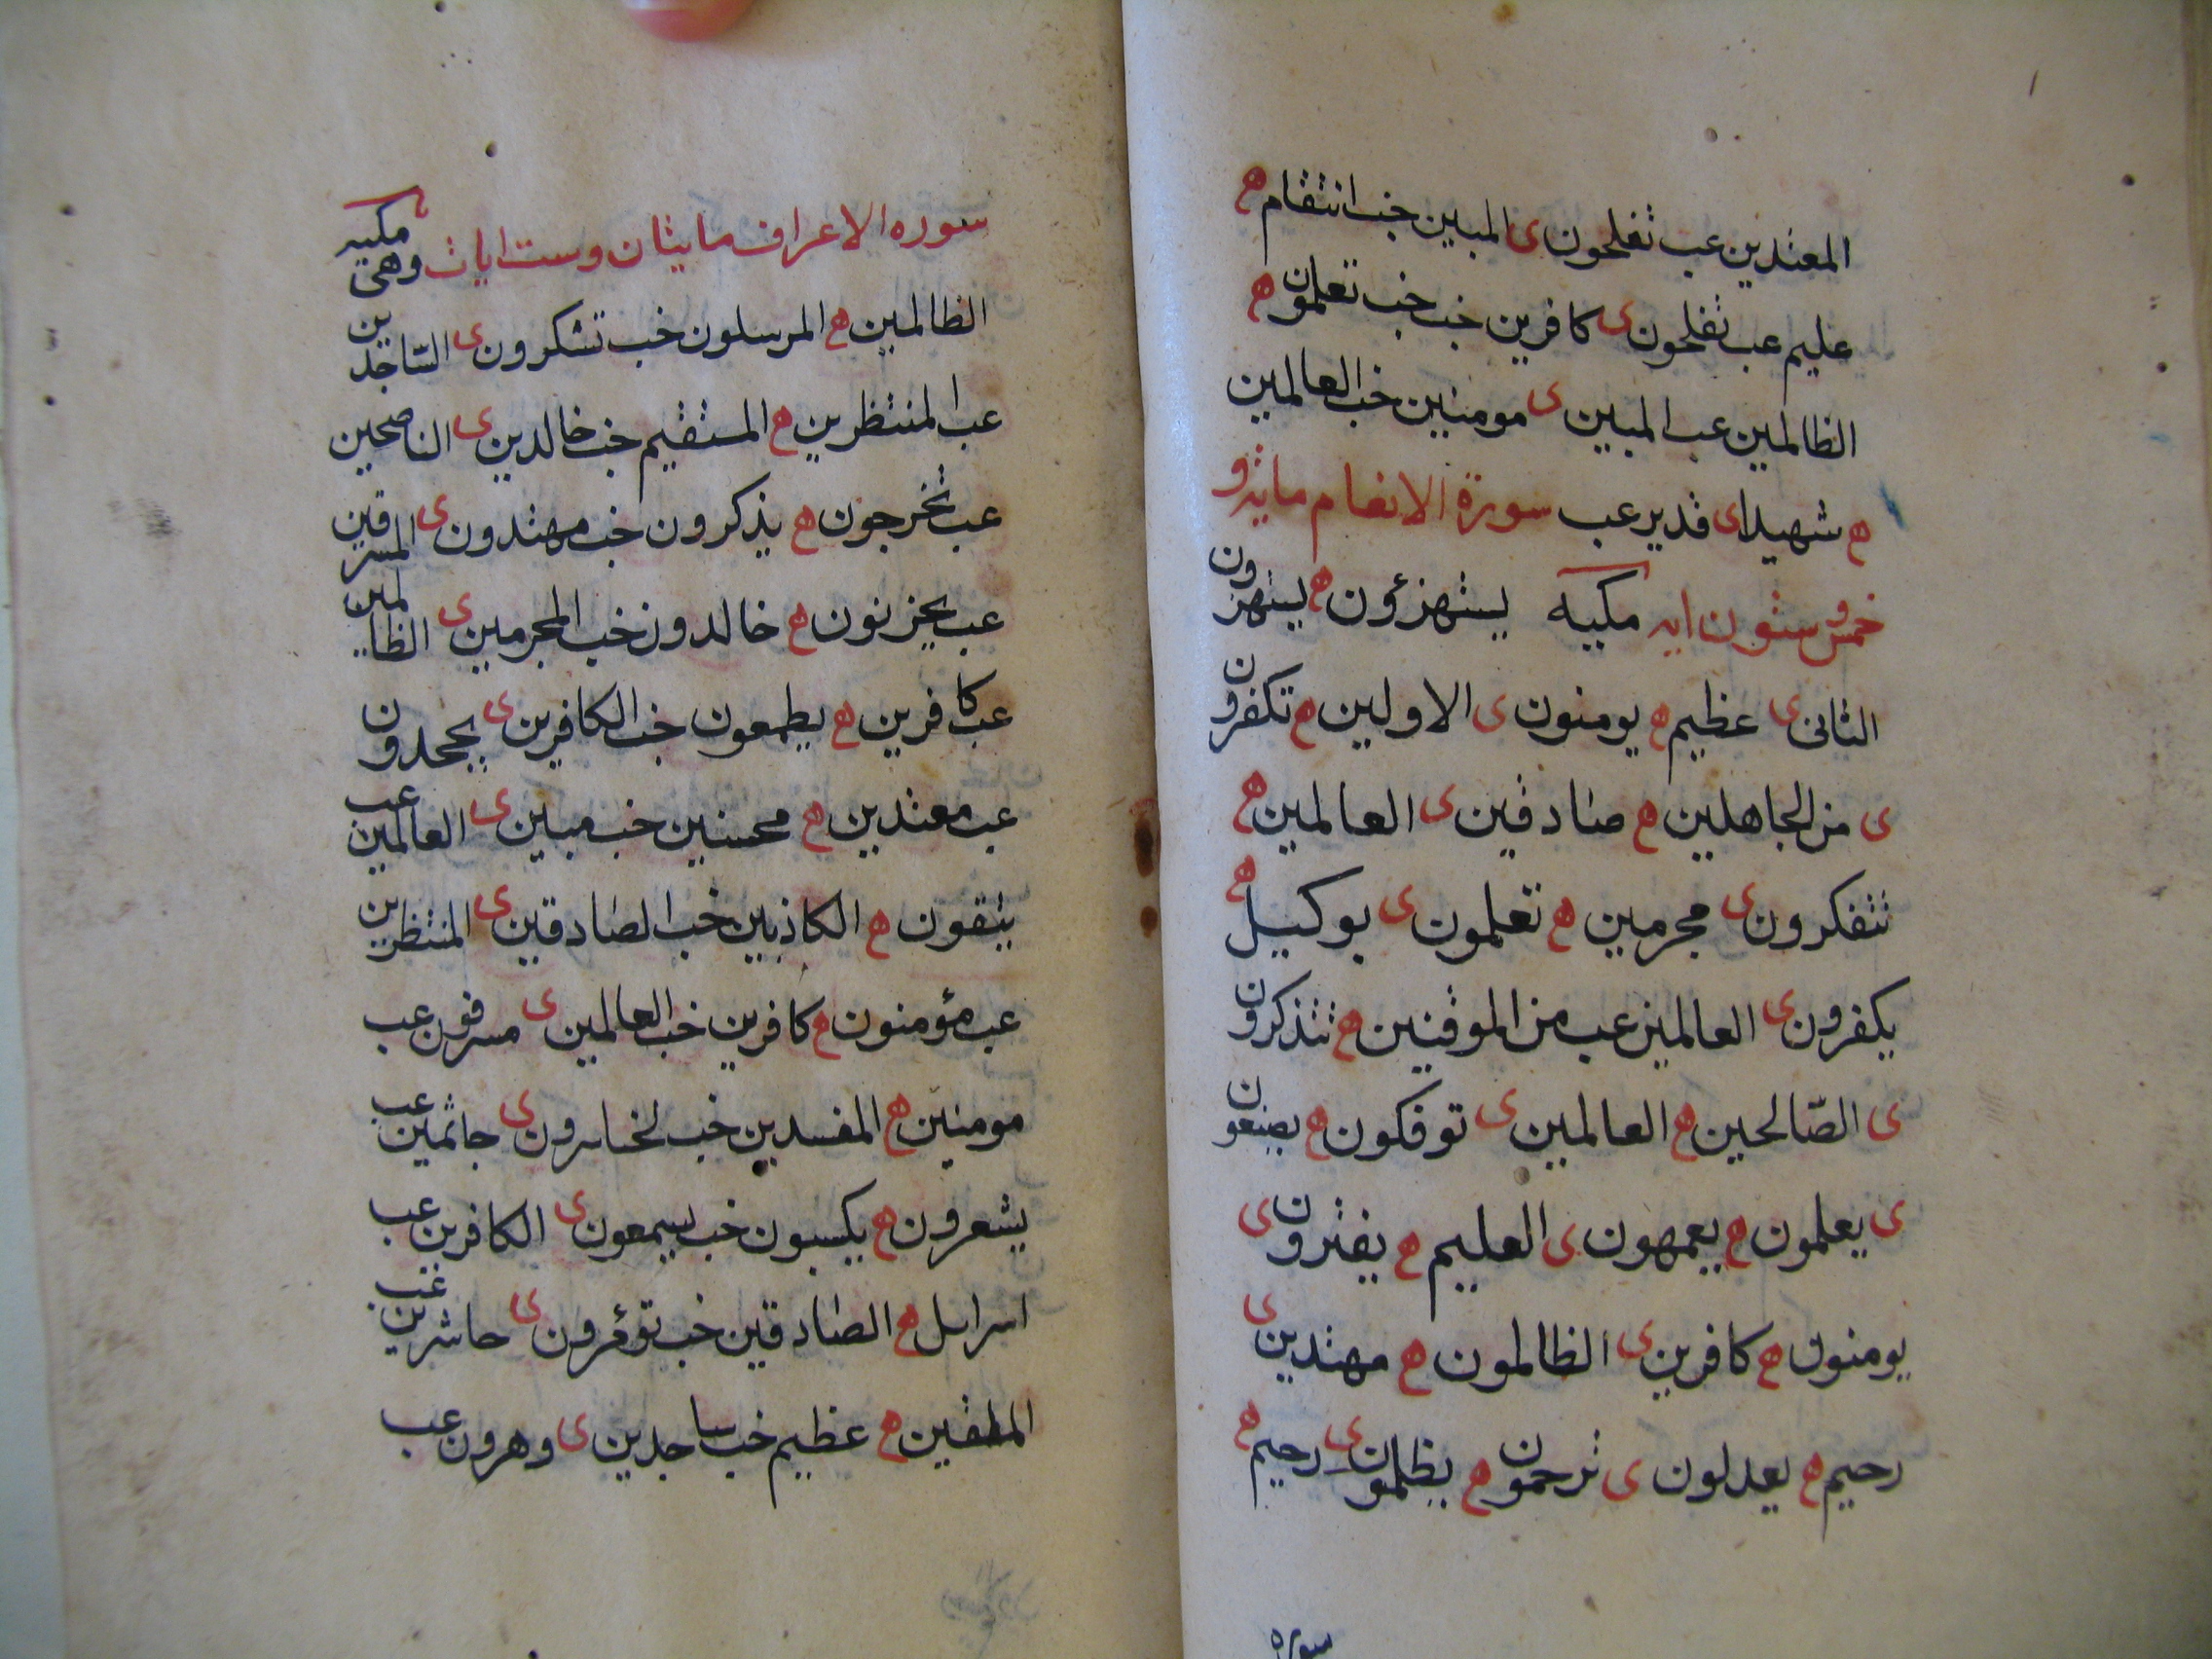 المعتدين عب تفلحون ى المبين خب انتقام ه
عليم عب تفلحون ى كافرين خب خب تعلمون ه
الظالمين عب المبين ى مومنين خب العالمين
ه شهيدا ى قدير عب سورة الانعام مايه و
خمس و ستون ايه مكيه يستهزءون ه يستهزون
الثانى ى عظيم ه يومنون ى الاولين ه تكفرون
ى من الجاهلين ه صادقين ى العالمين ه
تتفكرون ى مجرمين ه تعلمون ى بوكيل ه
يكفرون ى العالمين عب من الموقنين ه تتذكرون
ى الصّالحين ه العالمين ى توفكون ه يصنعون
ى يعلمون ه يعمهون ى العليم ه يفترون ى
يومنون ه كافرين ى الظالمون ه مهتدين ى
رحيم ه يعدلون ى ترحمون ه يظلمون ى رحيم ه
سوره
سوره الاعراف مايتان وست ايات وهى مكيه
الظالمين ه المرسلون خب تشكرون ى السّاجدين
عب المنتظرين ه المستقيم خب خالدين ى الناصحين
عب تخرجون ه يذكرون خب مهتدون ى المسرفين
عب يحزنون ه خالدون خب المجرمين ى الظالمين
عب كافرين ه يطمعون خب الكافرين ى يجحدون
عب معتدين ه محسنين خب مبين ى العالمين عب
يتقون ه الكاذبين خب الصادقين ى المنتظرين
عب مؤمنون ه كافرين خب العالمين ى مسرفون عب
مومنين ه المفسدين خب لخاسرون ى جاثمين عب
يشعرون ه يكسبون خب يسمعون ى الكافرين عب
اسرايل ه الصادقين خب ى حاشرين عب
ه عظيم خب ساجدين ى وهرون عب